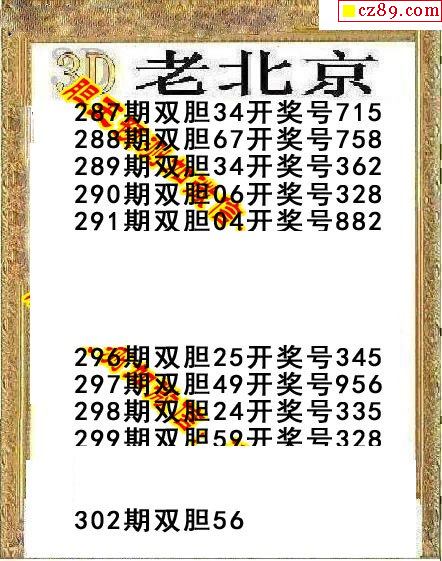 cz89.com
3D 老北京
287期双胆34开奖号715
288期双胆67开奖号758
289期双胆34开奖号362
290期双胆06开奖号328
291期双胆04开奖号882
296期双胆25开奖号345
297期双胆49开奖号956
298期双胆24开奖号335
299期双胆59开奖号328
302期双胆56